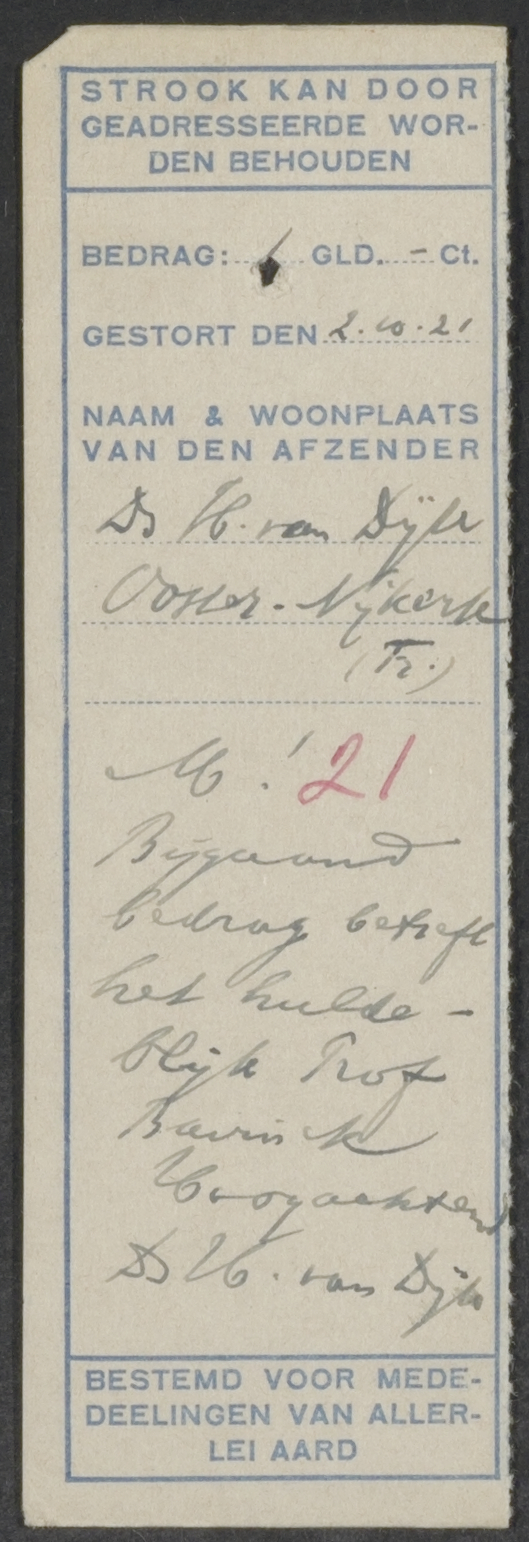 STROOK KAN DOOR
GEADRESSEERDE WOR-
DEN BEHOUDEN
BEDRAG: GLD. - Ct.
GESTORT DEN 2.10.21
NAAM & WOONPLAATS
VAN DEN AFZENDER
Ds H. van Dijk
Ooster-Nijkerk
(Fr.)
M! 21
Bijgaand
bedrag betreft
het hulde-
blijk Prof
Bavinck
Hoogachtend
Ds H. van Dijk
BESTEMD VOOR MEDE-
DEELINGEN VAN ALLER-
LEI AARD